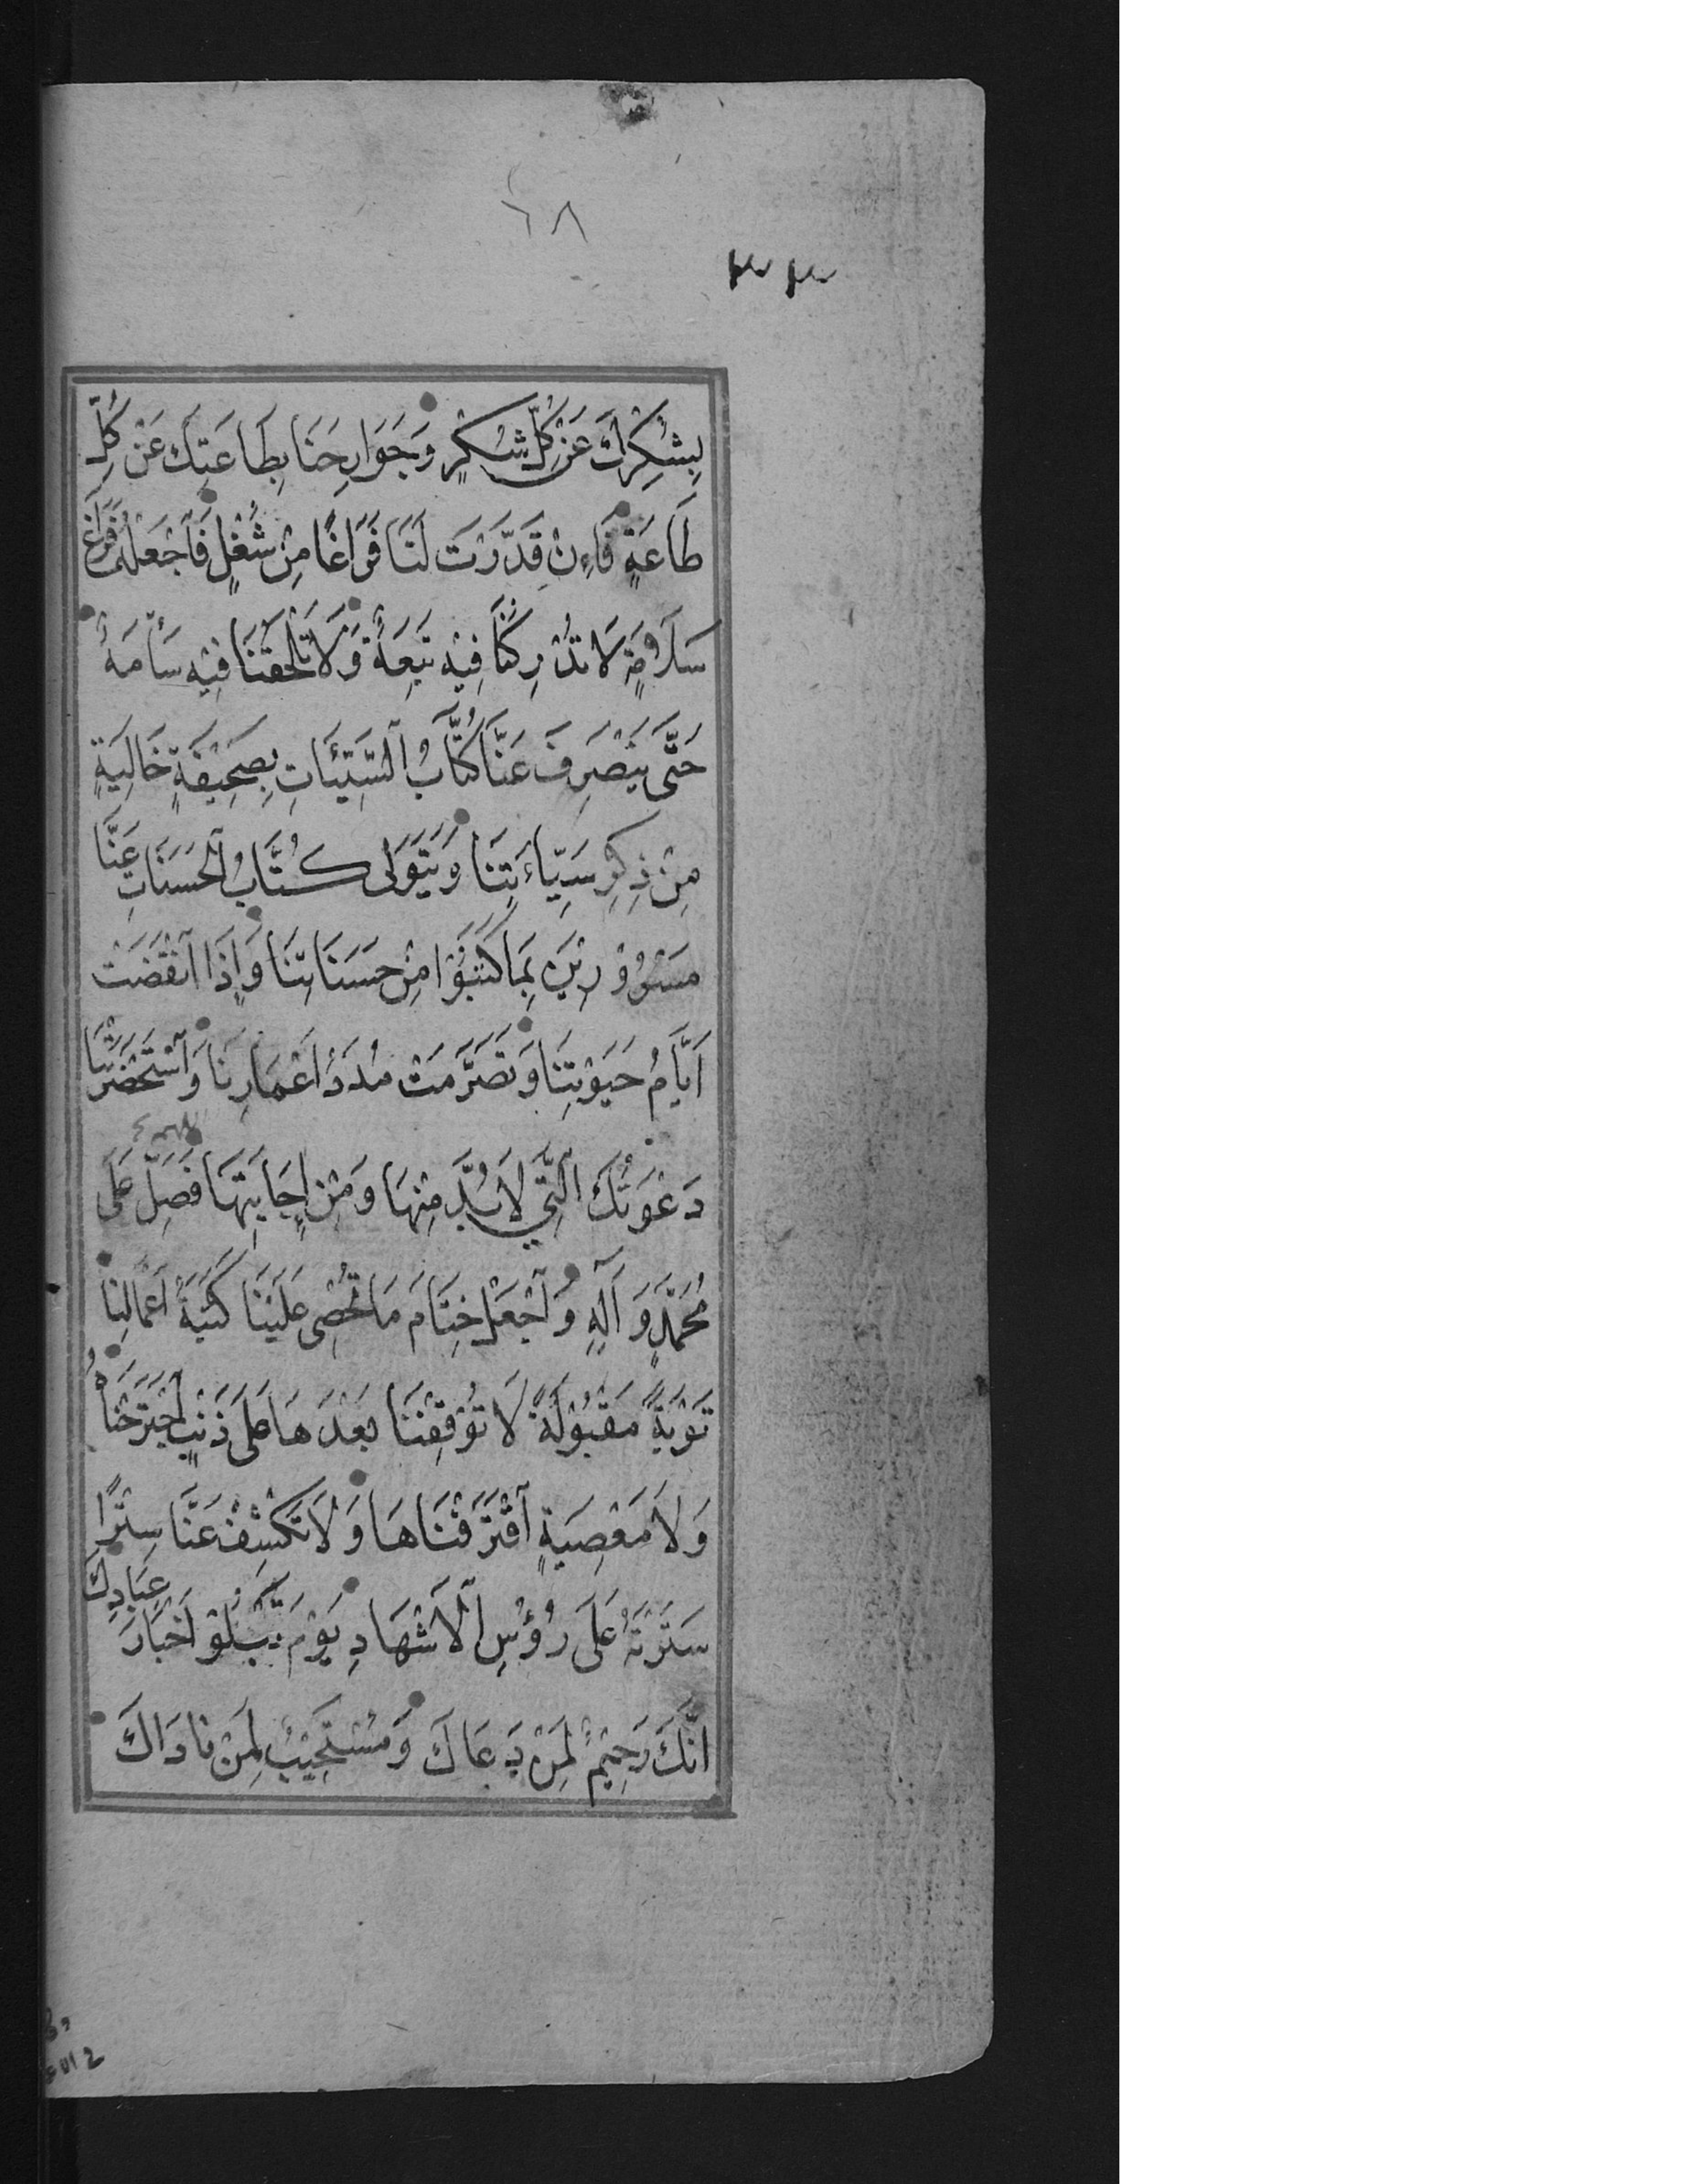 ٦٨
٣٣
بِشُكْرِكَ عَنْ كُلِّ شُكْرٍ وَجَوَارِحَنَا بِطَاعَتِكَ عَنْ كُلِّ
طَاعَةٍ فَاِنْ قَدَّرْتَ لَنَا فَرَاغًا مِنْ شُغْلٍ فَاجْعَلْهُ فَرَاغَ
سَلَامَةٍ لَا تُدْرِكُنَا فِيْهِ تَبِعَةٌ وَلَا تَلْحَقُنَا فِيْهِ سَأْمَةٌ
حَتَّى يَنْصَرِفَ عَنَّا كُتَّابُ السَّيِّئَاتِ بِصَحِيْفَةٍ خَالِيَةٍ
مِنْ ذِكْرِ سَيِّاءَتِنَا وَيَتَوَلَّى كُتَّابُ الْحَسَنَاتِ عَنَّا
مَسْرُوْرِيْنَ بِمَا كَتَبُوْا مِنْ حَسَنَاتِنَا وَاِذَا انْقَضَتْ
اَيَّامُ حَيٰوتِنَا وَتَصَرَّمَتْ مُدَدُ اَعْمَارِنَا وَاسْتَحْضَرَتْنَا
دَعْوَتُكَ الَّتِي لَا بُدَّ مِنْهَا وَمِنْ اِجَابَتِهَا فَصَلِّ عَلَى
مُحَمَّدٍ وَاٰلِهِ وَاجْعَلْ خِتَامَ مَا تُحْصِي عَلَيْنَا كَتَبَةُ اَعْمَالِنَا
تَوْبَةً مَقْبُوْلَةً لَا تُوْقِفُنَا بَعْدَهَا عَلَى ذَنْبٍ اجْتَرَحْنَاهُ
وَلَا مَعْصِيَةٍ اقْتَرَفْنَاهَا وَلَا تَكْشِفْ عَنَّا سِتْرًا
سَتَرْتَهُ عَلَى رُؤُسِ الْاَشْهَادِ يَوْمَ تَبْلُوْ اَخْبَارَ عِبَادِكَ
اِنَّكَ رَحِيْمٌ لِمَنْ دَعَاكَ وَمُسْتَجِيْبٌ لِمَنْ نَادَاكَ